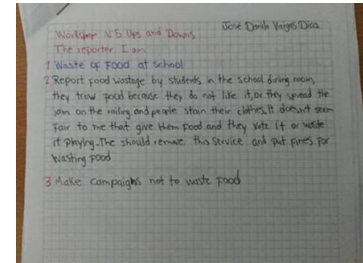 Jose Danilo Vargas Diaz
Workshop V5 Ups and Downs
The reporter I am
1 Waste of Food at School
2 Report food wastage by students in the school dining room,
they trow food because they do not like it, or they spread the
jam on the railing and people stain their clothes, It doesn't seem
Fair to me that give them food and they it or waste
it playing. The should remove this service and put fines for
wasting food
3 Make campaighs not to waste food